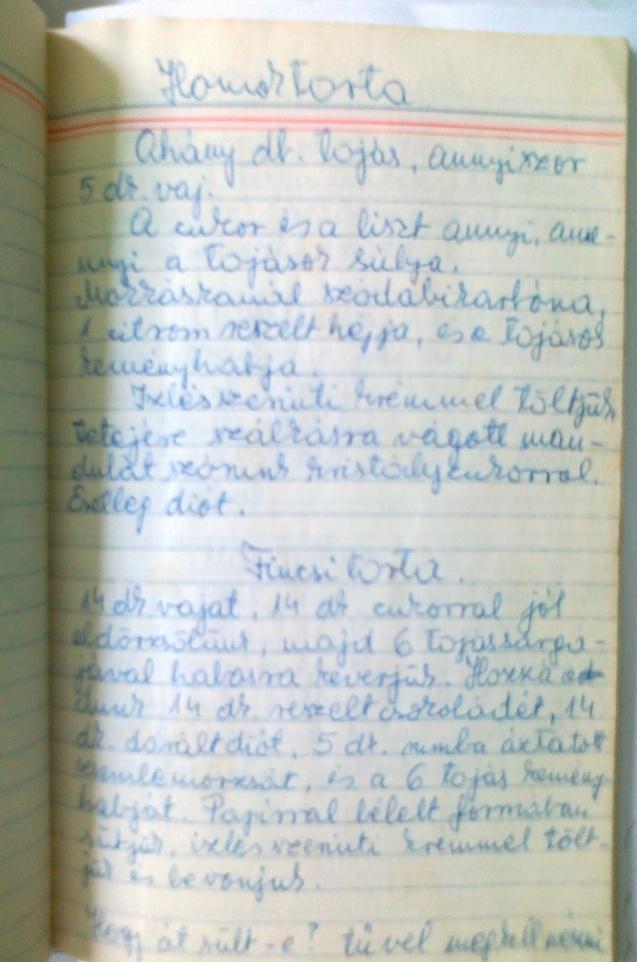 Homoktorta
Ahány db. tojás, annyiszor
5 dk. vaj.
A cukor és a liszt annyi, ame-
nnyi a tojások súlya.
szódabikarbóna,
1 citrom reszelt héjja, és a tojások
keményhabja.
Izlés szerinti krémmel töltjük,
tetejére szálkásra vágott man-
dulát szórunk kristálycukorral.
Esetleg diót.
Fincsi torta.
14 dk vajat, 14 dk cukorral jól
eldörzsölünk, majd 6 tojássárgá-
jával habosra keverjük. Hozzá ad-
unk 14 dk. reszelt csokoládét, 14
dk. darált diót, 5 dk. rumba áztatott
zsemlemorzsát, és a 6 tojás kemény
habját. Papirral bélelt formában
sütjük, izlés szerinti krémmel tölt-
jük és bevonjuk.
Hogy át sült-e? tüvel meg kell nézni